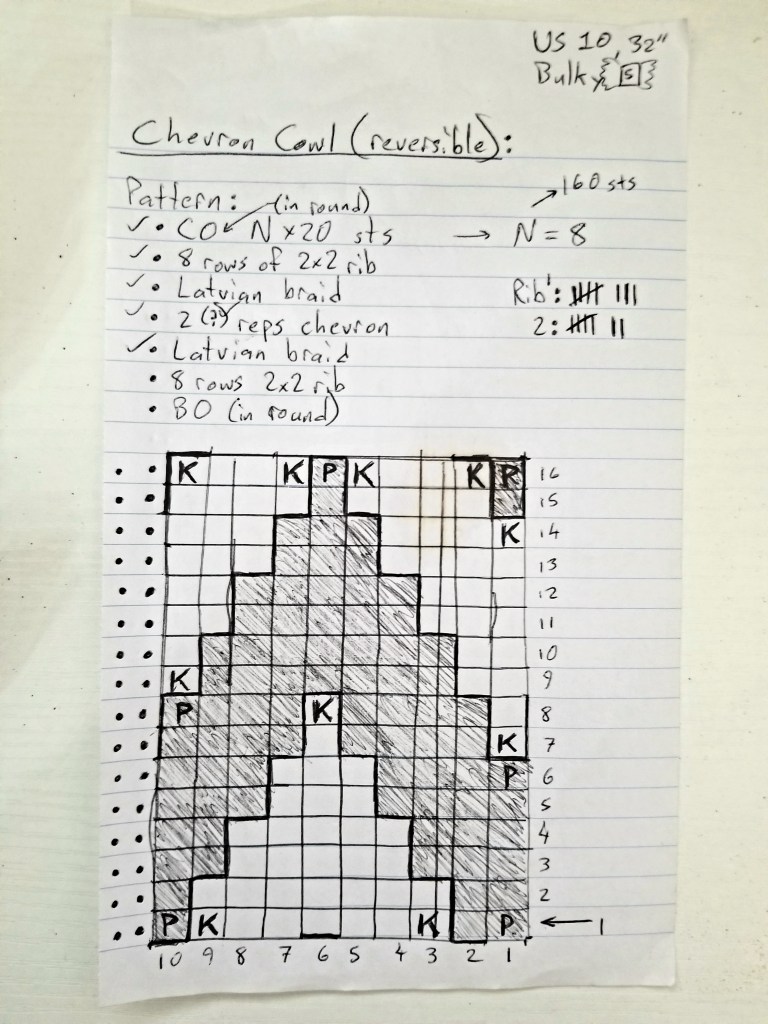 US 10, 32"
Bulky 5
Chevron Cowl (reversible):
Pattern: (in round) → 160 sts
✓ • CO N x 20 sts → N = 8
✓ • 8 rows of 2x2 rib
✓ • Latvian braid Rib 1: 卌 |||
✓ • 2 (?) reps chevron 2: 卌 ||
✓ • Latvian braid
• 8 rows 2x2 rib
• BO (in round)
K K P K K P 16
15
K 14
13
12
11
10
K 9
P K 8
K 7
P 6
5
4
3
2
P K K P ← 1
10 9 8 7 6 5 4 3 2 1